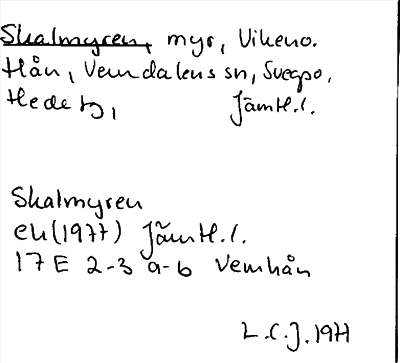 Skalmyren, myr, Vikeno.
Hån, Vemdalens sn, Svegpo,
Hede tg, Jämtl.l.
Skalmyren
ek(1977) Jämtl.l.
17E 2-3 a-b Vemhån
L.C.J. 1971